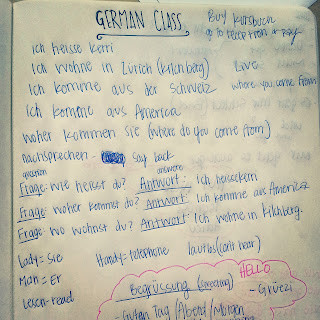 GERMAN CLASS
Buy Kursbuch
go to reception & pay
Ich heisse Kerri
Ich wohne in Zürich (Kilchberg) Live
Ich komme aus der Schweiz where you come from
Ich komme aus America
woher kommen Sie (where do you come from)
nachsprechen - say back
question answer
Frage: wie heisst du? Antwort: Ich heisse Kerri
Frage: woher kommst du? Antwort: Ich komme aus America
Frage: wo wohnst du? Antwort: Ich wohne in Kilchberg.
Lady = Sie Handy = telephone lautlos (can't hear)
Man = Er HELLO
Lesen - read Begrüssung (greeting) - Grüezi
- Guten Tag / Abend / Morgen